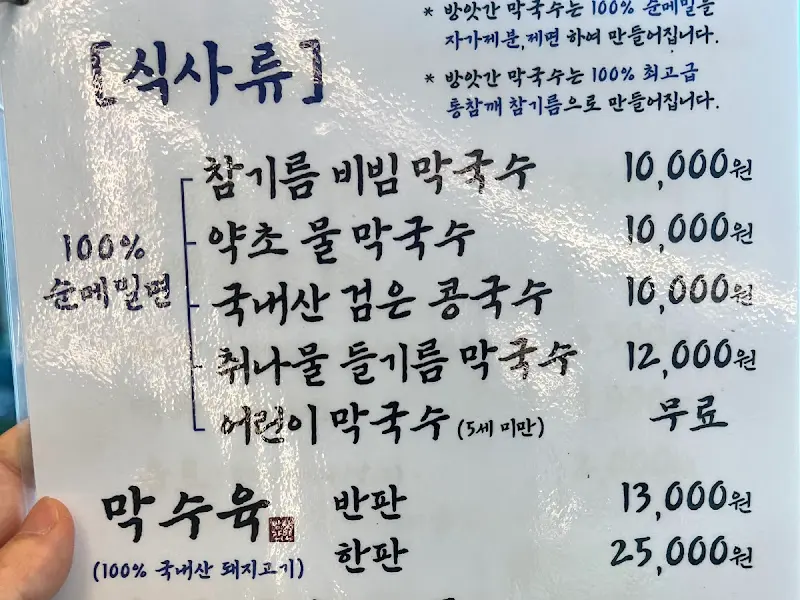 * 방앗간 막국수는 100% 순메밀을
자가제분,제면 하여 만들어집니다.
* 방앗간 막국수는 100% 최고급
통참깨 참기름으로 만들어집니다.
[식사류]
100%
순메밀면
참기름 비빔 막국수 10,000원
약초 물 막국수 10,000원
국내산 검은 콩국수 10,000원
취나물 들기름 막국수 12,000원
어린이 막국수 (5세 미만) 무료
막수육 반판 13,000원
(100% 국내산 돼지고기) 한판 25,000원